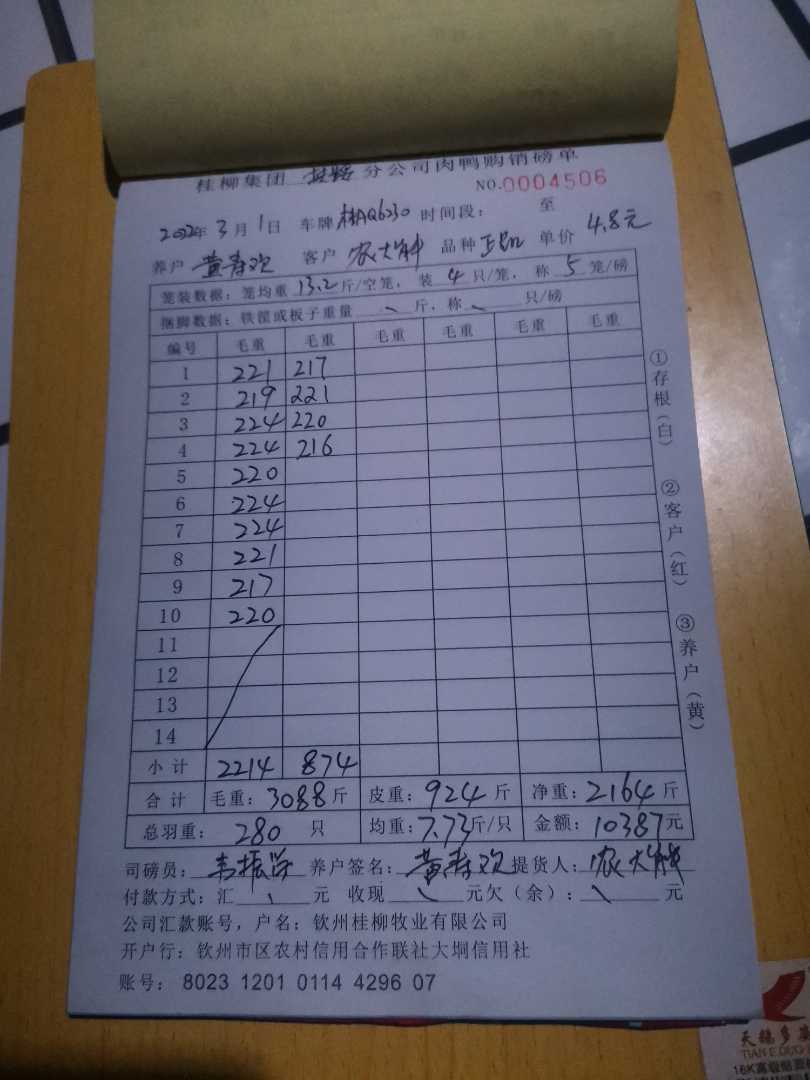 桂柳集团 分公司肉鸭购销磅单
NO.0004506
2022年3月1日 车牌桂AQ6230 时间段： 至
养户 黄寿欢 客户 农大 品种 正品 单价 4.8元
笼装数据：笼均重 13.2 斤/空笼，装 4 只/笼，称 5 笼/磅
捆脚数据：铁筐或板子重量 \ 斤，称 \ 只/磅
编号 毛重 毛重 毛重 毛重 毛重 毛重
1 221 217
2 219 221
3 224 220
4 224 216
5 220
6 224
7 224
8 221
9 217
10 220
11
12
13
14
小计 2214 874
合计 毛重：3088斤 皮重：924斤 净重：2164斤
总羽重：280只 均重：7.73斤/只 金额：10387元
司磅员：韦振 养户签名：黄寿欢 提货人：农大
付款方式：汇 \ 元 收现 \ 元欠（余）：\ 元
公司汇款账号，户名：钦州桂柳牧业有限公司
开户行：钦州市区农村信用合作联社大垌信用社
账号：8023 1201 0114 4296 07
①存根（白）
②客户（红）
③养户（黄）
天鹅多
TIAN E DUO
16K高级贴面